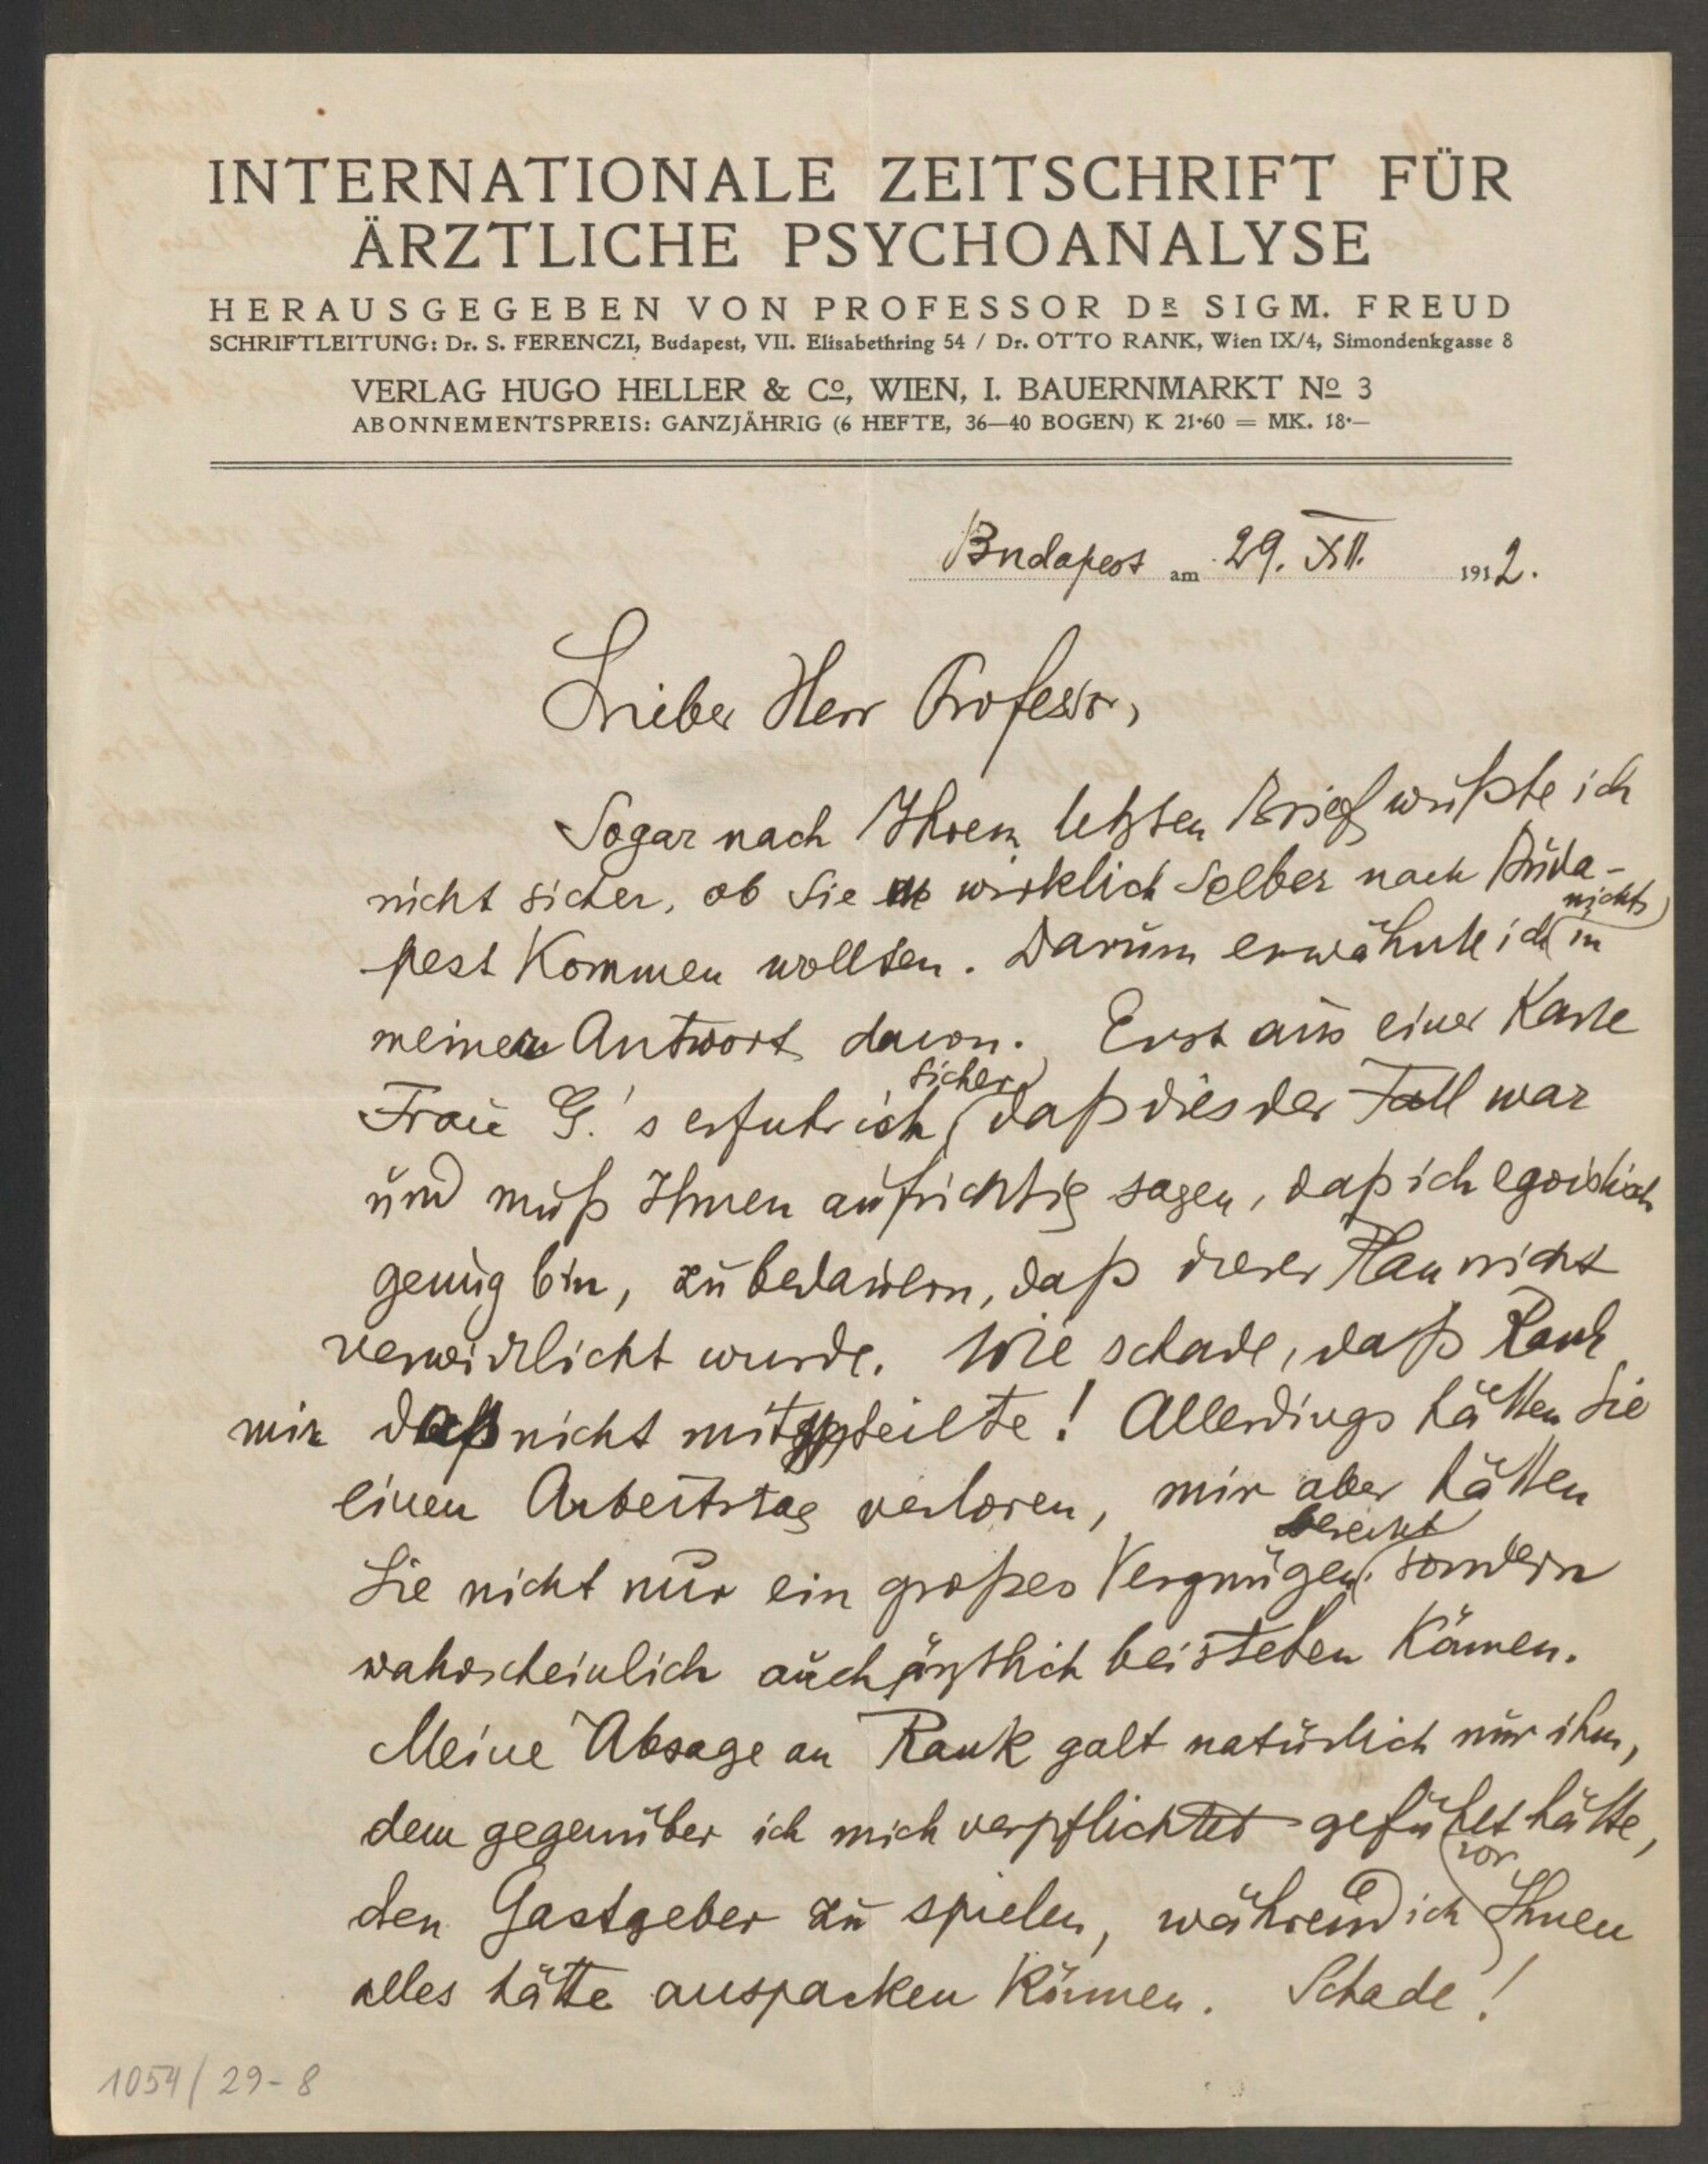 INTERNATIONALE ZEITSCHRIFT FÜR
ÄRZTLICHE PSYCHOANALYSE
HERAUSGEGEBEN VON PROFESSOR DR SIGM. FREUD
SCHRIFTLEITUNG: Dr. S. FERENCZI, Budapest, VII. Elisabethring 54 / Dr. OTTO RANK, Wien IX/4, Simondenkgasse 8
VERLAG HUGO HELLER & Co, WIEN, I. BAUERNMARKT No 3
ABONNEMENTSPREIS: GANZJÄHRIG (6 HEFTE, 36—40 BOGEN) K 21·60 = MK. 18·—
Budapest am 29. XII. 1912.
Lieber Herr Professor,
Sogar nach Ihrem letzten Brief wußte ich
nicht sicher, ob Sie wirklich selber nach Buda-
pest kommen wollten. Darum erwähnte ich nichts in
meiner Antwort davon. Erst aus einer Karte
Frau G.'s erfuhr ich sicher, daß dies der Fall war
und muß Ihnen aufrichtig sagen, daß ich egoistisch
genug bin, zu bedauern, daß dieser Plan nicht
verwirklicht wurde. Wie schade, daß Rank
mir das nicht mitteilte! Allerdings hätten Sie
einen Arbeitstag verloren, mir aber hätten
Sie nicht nur ein großes Vergnügen bereitet sondern
wahrscheinlich auch ärztlich beistehen können.
Meine Absage an Rank galt natürlich nur ihm,
dem gegenüber ich mich verpflichtet gefühlt hätte,
den Gastgeber zu spielen, während ich vor Ihnen
alles hätte auspacken können. Schade!
1054/29-8